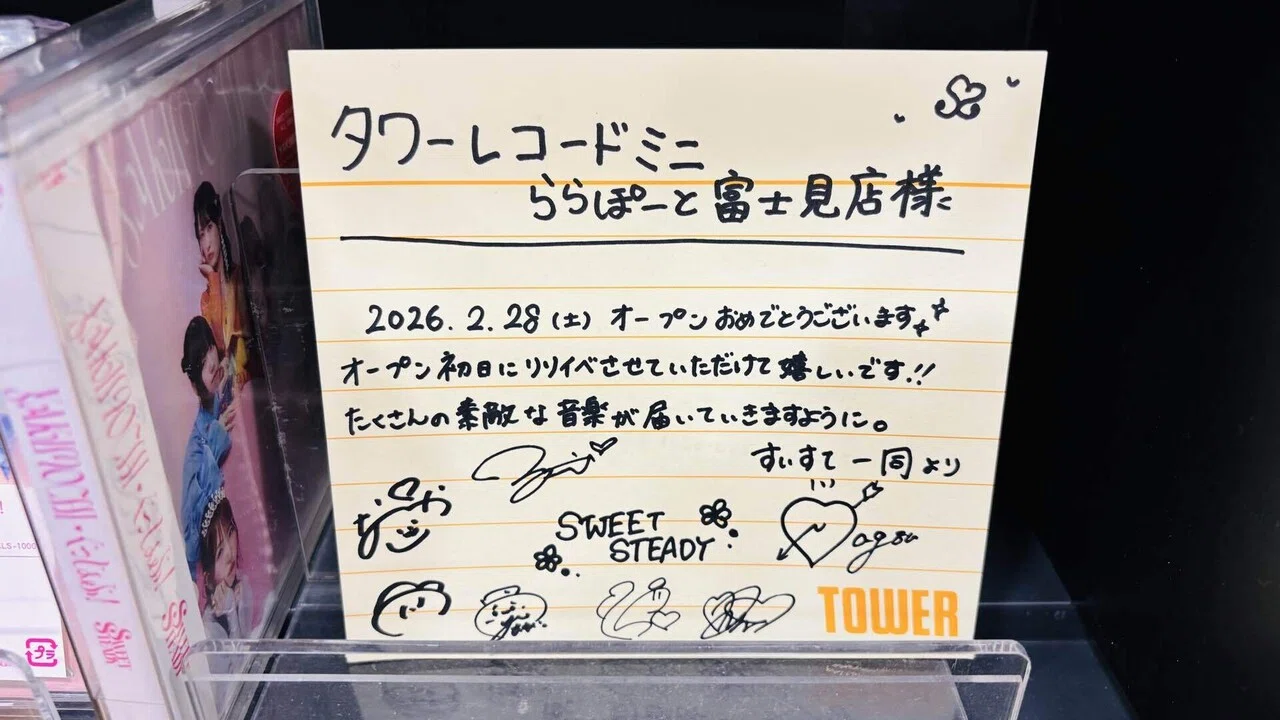 タワーレコードミニ
ららぽーと富士見店様
2026.2.28(土) オープンおめでとうございます
オープン初日にリリイベさせていただけて嬉しいです!!
たくさんの素敵な音楽が届いていきますように。
すいすて一同より
SWEET
STEADY
TOWER
プラ